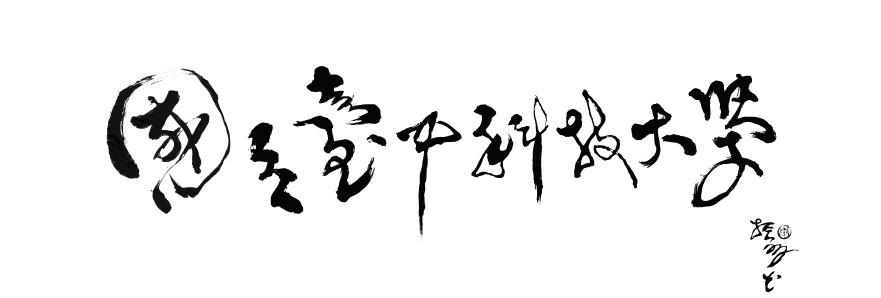 國立臺中科技大學